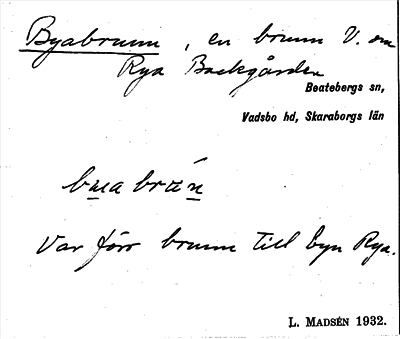 Byabrunn, en brunn V. om
Rya Backgården
Beatebergs sn,
Vadsbo hd, Skaraborgs län
Var förr brunn till byn Rya.
L. MADSÉN 1932.